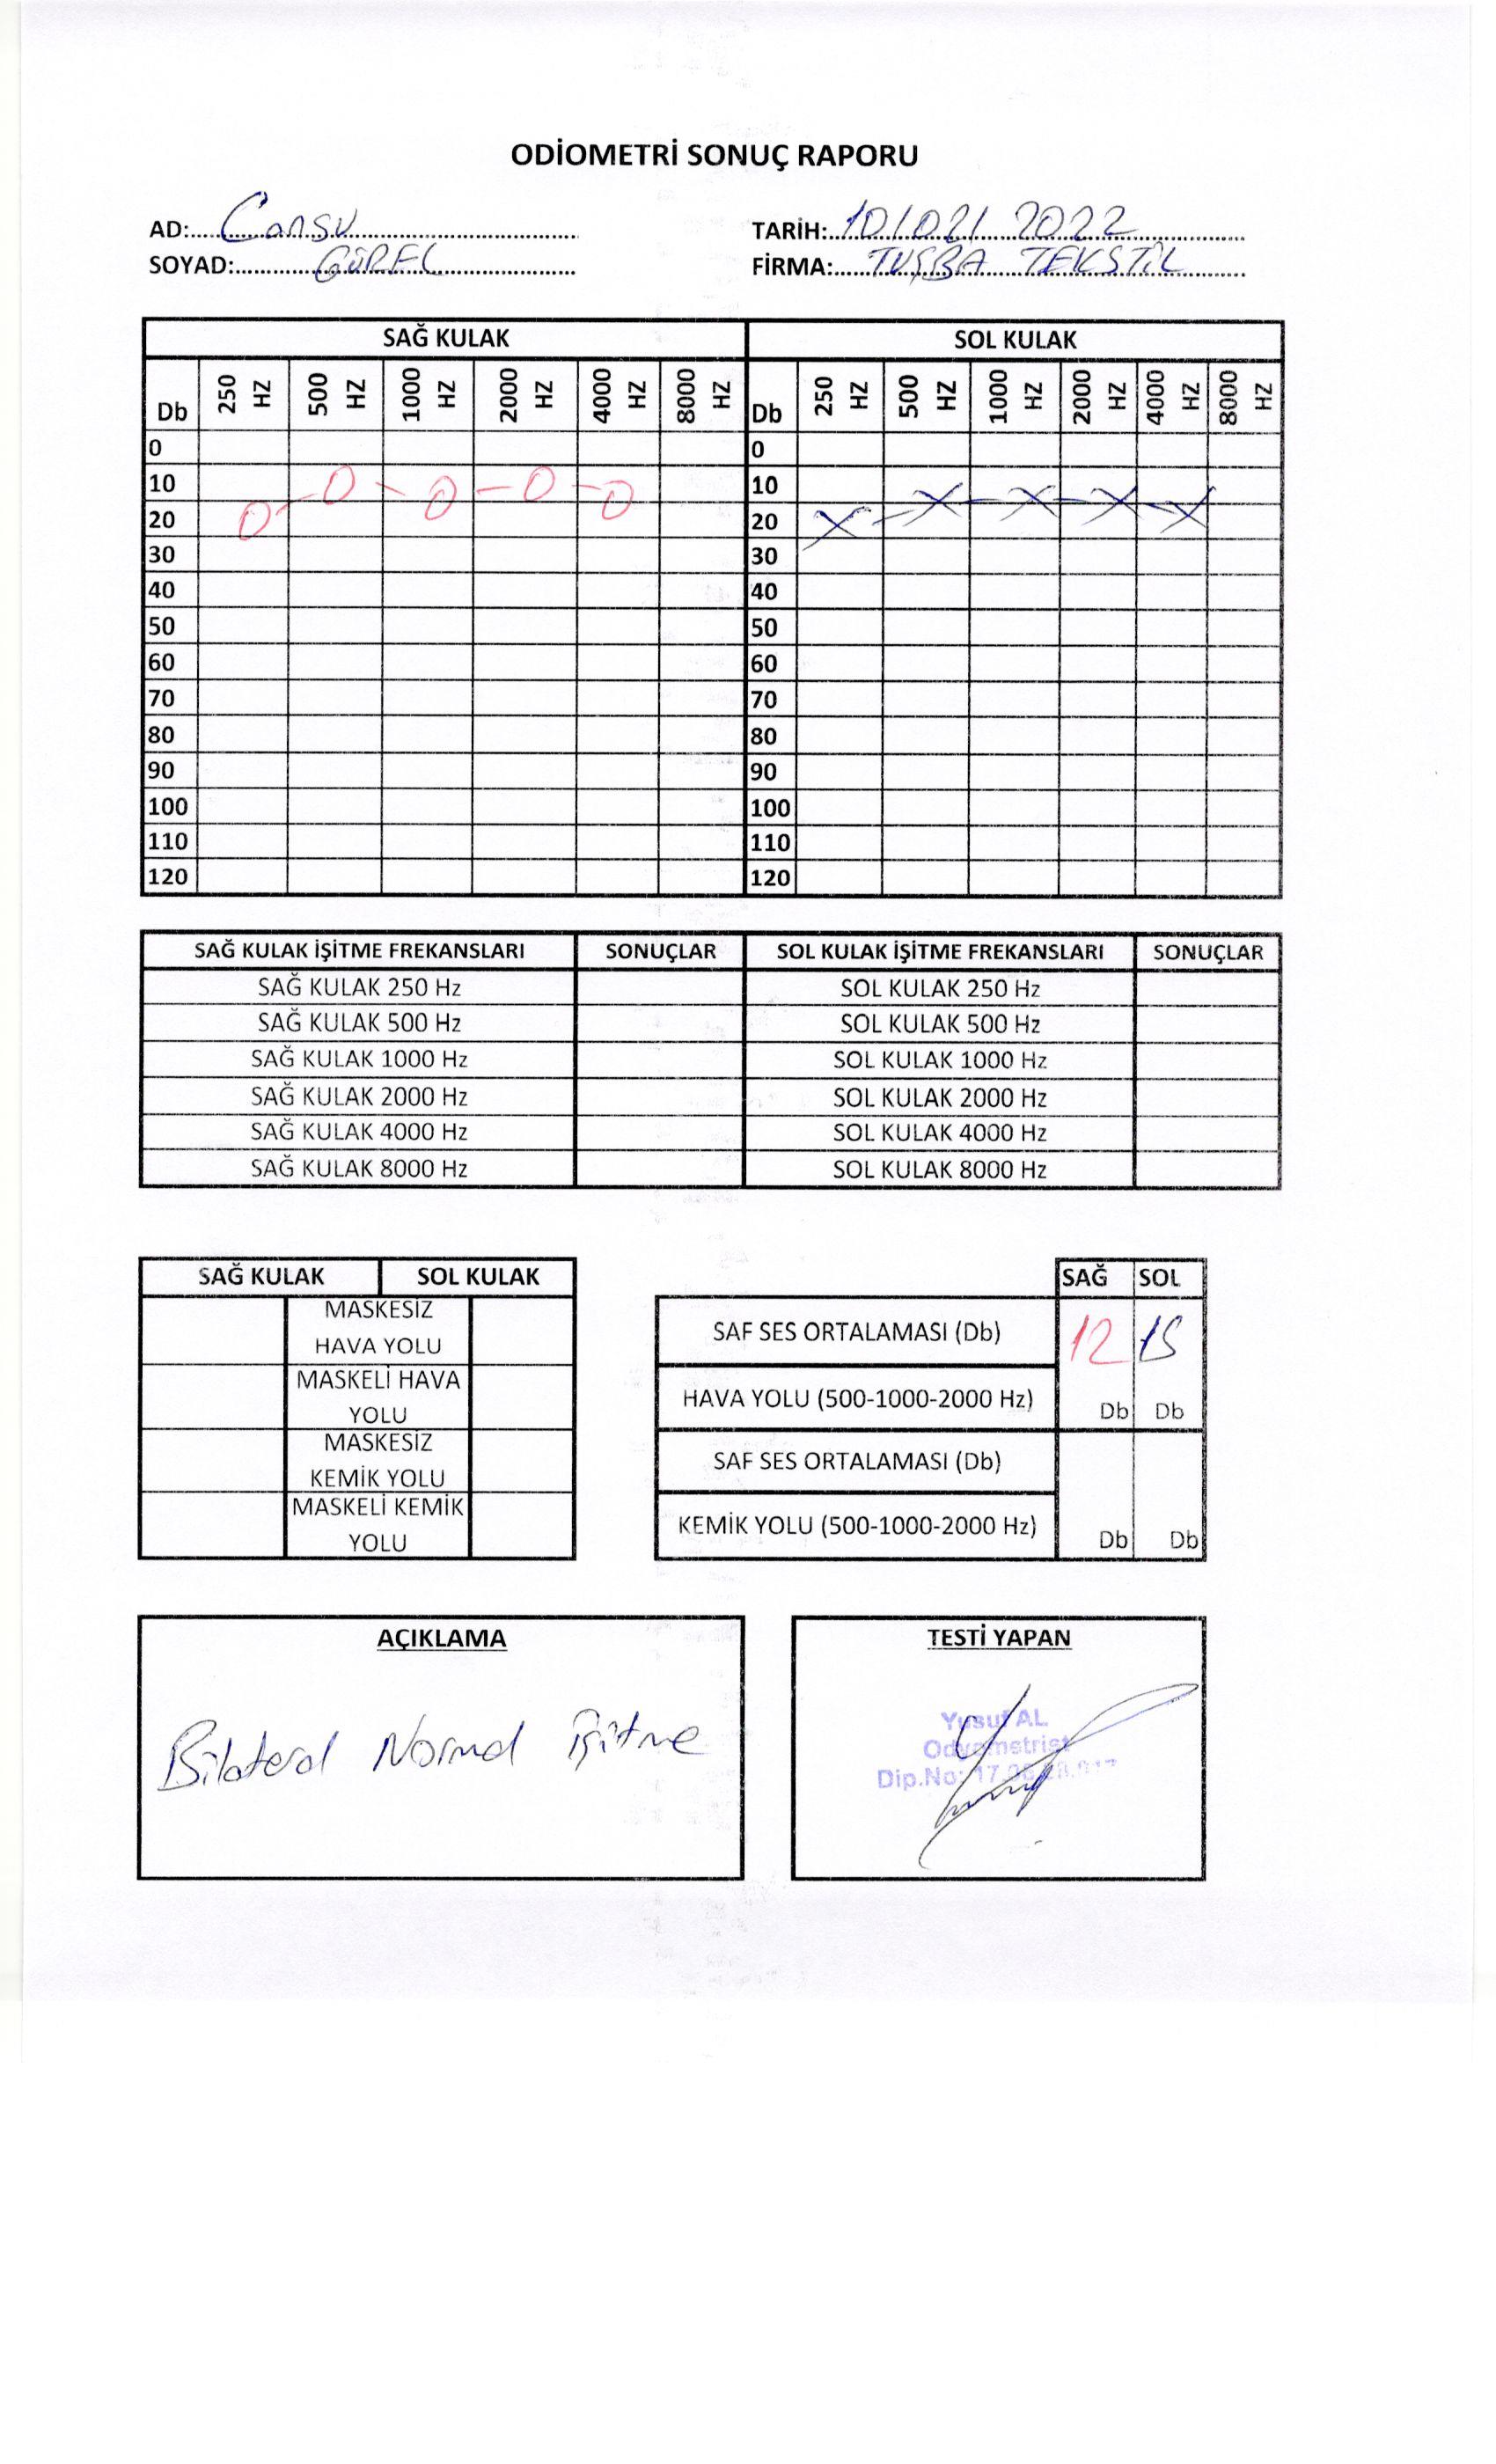 ODİOMETRİ SONUÇ RAPORU
AD: Cansu TARİH: 10/02/2022
SOYAD: GÜREL FİRMA: TUŞBA TEKSTİL
SAĞ KULAK SOL KULAK
Db 250 HZ 500 HZ 1000 HZ 2000 HZ 4000 HZ 8000 HZ Db 250 HZ 500 HZ 1000 HZ 2000 HZ 4000 HZ 8000 HZ
0 0
10 10
20 20
30 30
40 40
50 50
60 60
70 70
80 80
90 90
100 100
110 110
120 120
SAĞ KULAK İŞİTME FREKANSLARI SONUÇLAR SOL KULAK İŞİTME FREKANSLARI SONUÇLAR
SAĞ KULAK 250 Hz SOL KULAK 250 Hz
SAĞ KULAK 500 Hz SOL KULAK 500 Hz
SAĞ KULAK 1000 Hz SOL KULAK 1000 Hz
SAĞ KULAK 2000 Hz SOL KULAK 2000 Hz
SAĞ KULAK 4000 Hz SOL KULAK 4000 Hz
SAĞ KULAK 8000 Hz SOL KULAK 8000 Hz
SAĞ KULAK SOL KULAK
MASKESİZ
HAVA YOLU
MASKELİ HAVA
YOLU
MASKESİZ
KEMİK YOLU
MASKELİ KEMİK
YOLU
SAĞ SOL
SAF SES ORTALAMASI (Db) 12 15
HAVA YOLU (500-1000-2000 Hz) Db Db
SAF SES ORTALAMASI (Db)
KEMİK YOLU (500-1000-2000 Hz) Db Db
AÇIKLAMA
Bilateral Normal İşitme
TESTİ YAPAN
Yusuf AL
Odyometrist
Dip.No: